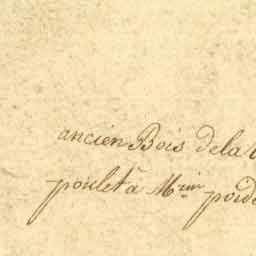 ancien Bois de la
poulet à M.rin poid